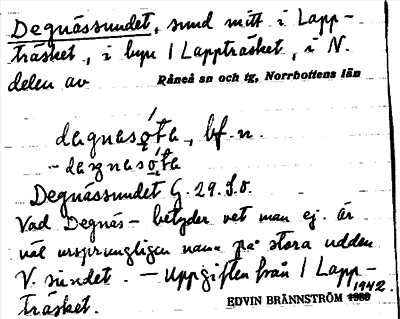 Degnässundet, sund mitt i Lapp-
träsket, i byn 1 Lappträsket, i N.
delen av Råneå sn och tg, Norrbottens län
dægnasǫ́ta, bf. n.
- dægnasǫ́ta
Degnässundet G. 29. S.
Vad Degnäs- betyder vet man ej. är
väl ursprungligen namn på stora udden
V. sundet. — Uppgiften från 1 Lapp-
träsket.
EDVIN BRÄNNSTRÖM 1942.